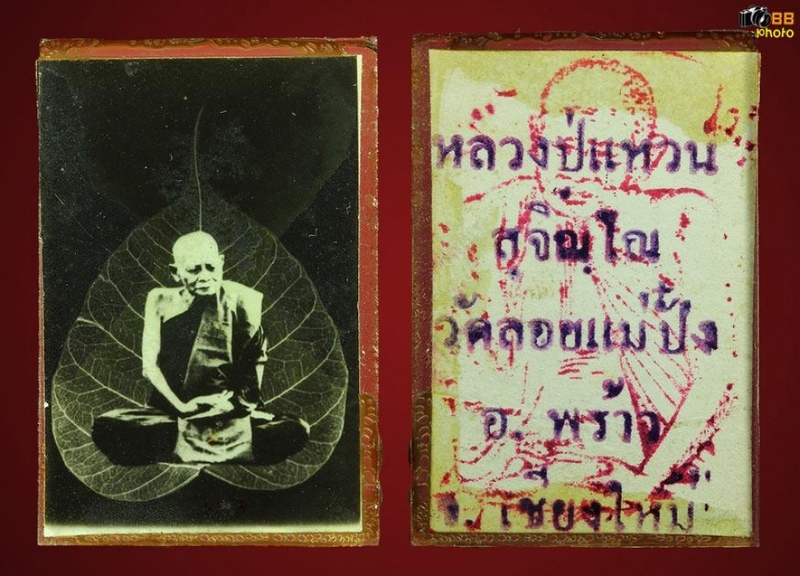 BB
photo
หลวงปู่แหวน
สุจิณฺโณ
วัดดอยแม่ปั๋ง
อ. พร้าว
จ. เชียงใหม่